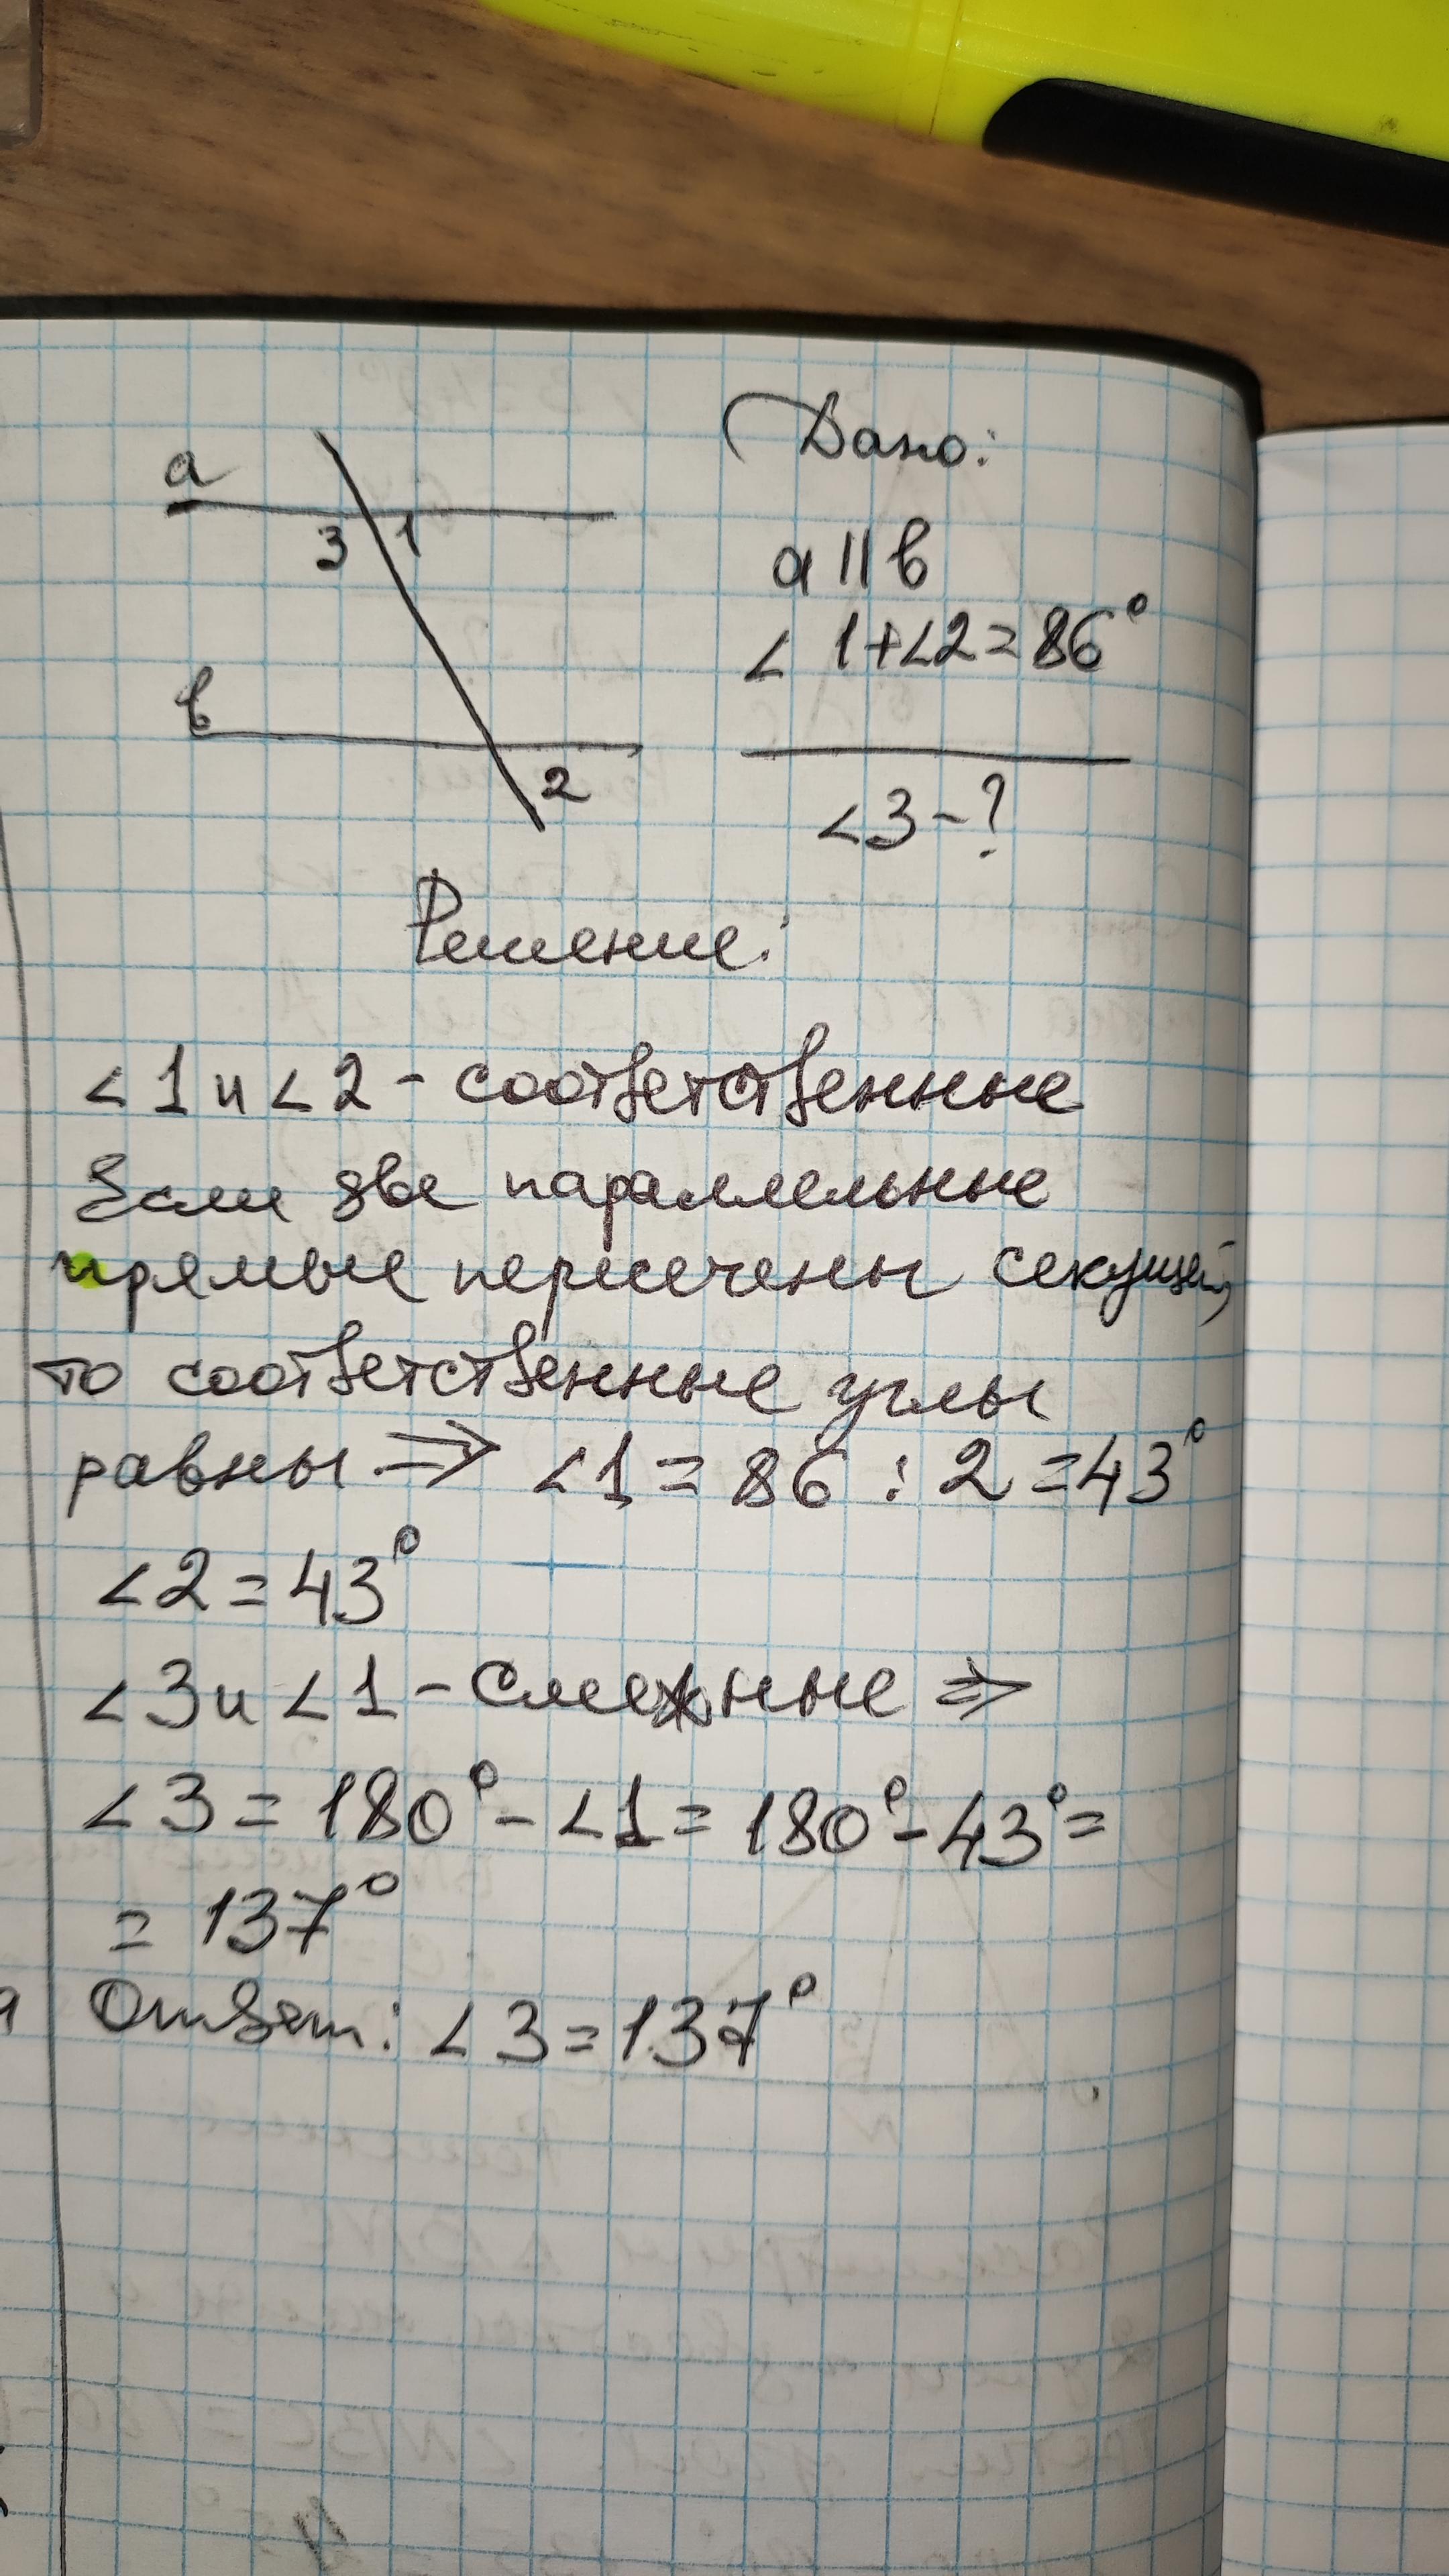 a
3 1
в
2
Дано:
a || в
∠1+∠2=86°
∠3-?
Решение:
∠1 и ∠2 - соответственные
Если две параллельные
прямые пересечены секущей,
то соответственные углы
равны ⇒ ∠1 = 86 : 2 = 43°
∠2 = 43°
∠3 и ∠1 - смежные ⇒
∠3 = 180° - ∠1 = 180° - 43° =
= 137°
Ответ: ∠3 = 137°